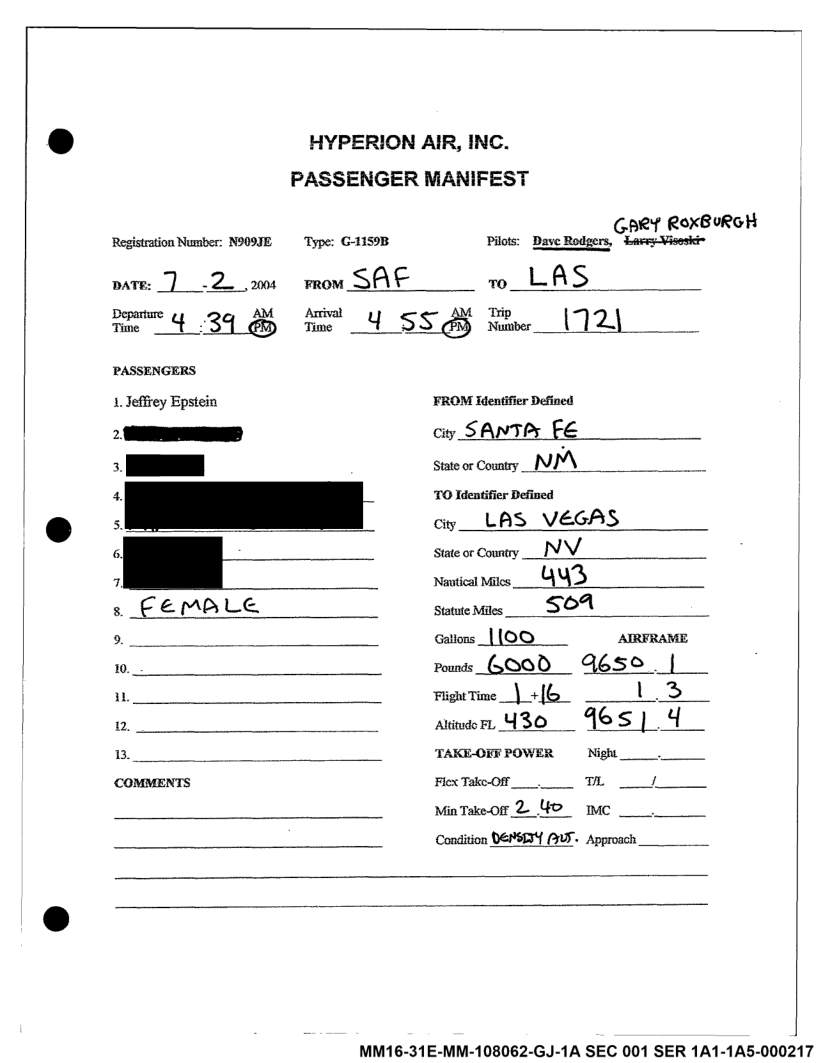 HYPERION AIR, INC.
PASSENGER MANIFEST
GARY ROXBURGH
Registration Number: N909JE Type: G-1159B Pilots: Dave Rodgers, Larry Visoski
DATE: 7 - 2 , 2004 FROM SAF TO LAS
Departure Time 4 : 39 AM PM Arrival Time 4 55 AM PM Trip Number 1721
PASSENGERS
1. Jeffrey Epstein FROM Identifier Defined
2. City SANTA FE
3. State or Country NM
4. TO Identifier Defined
5. City LAS VEGAS
6. State or Country NV
7. Nautical Miles 443
8. FEMALE Statute Miles 509
9. Gallons 1100 AIRFRAME
10. Pounds 6000 9650 . 1
11. Flight Time 1 + 16 1 . 3
12. Altitude FL 430 9651 . 4
13. TAKE-OFF POWER Night .
COMMENTS Flex Take-Off . T/L /
Min Take-Off 2 . 40 IMC .
Condition DENSITY ALT. Approach
MM16-31E-MM-108062-GJ-1A SEC 001 SER 1A1-1A5-000217